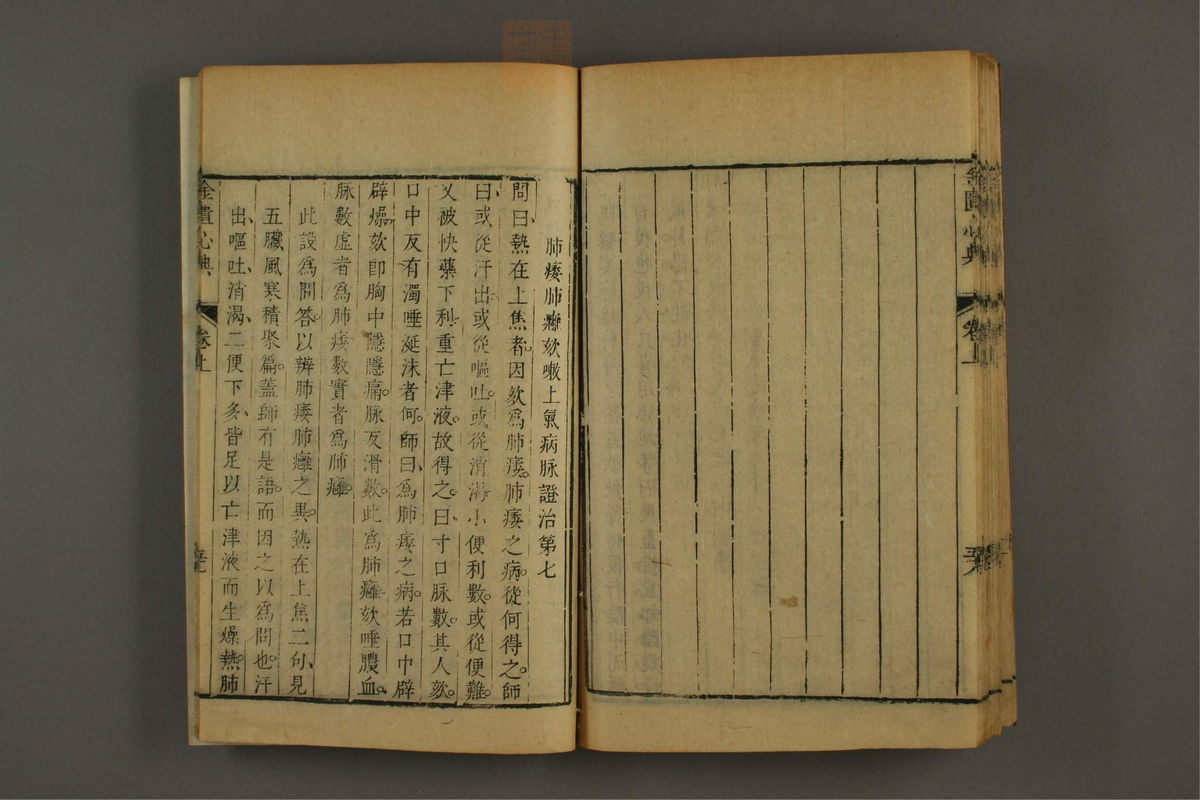 金匱心典
卷上
肺痿肺癰欬嗽上氣病脉證治第七
問曰熱在上焦者因欬爲肺痿。肺痿之病。從何得之。師
曰或從汗出或從嘔吐。或從消渴。小便利數。或從便難。
又被快藥下利。重亡津液。故得之。曰寸口脉數。其人欬。
口中反有濁唾涎沫者何。師曰爲肺痿之病。若口中辟
辟燥。欬卽胸中隱隱痛。脉反滑數。此爲肺癰。欬唾膿血。
脉數虛者爲肺痿數實者爲肺癰。
此設爲問答。以辨肺痿肺癰之異。熱在上焦二句、見
五臟風寒積聚篇。蓋師有是語。而因之以爲問也。汗
出、嘔吐、消渴、二便下多、皆足以亡津液而生燥熱。肺
金匱心典
卷上